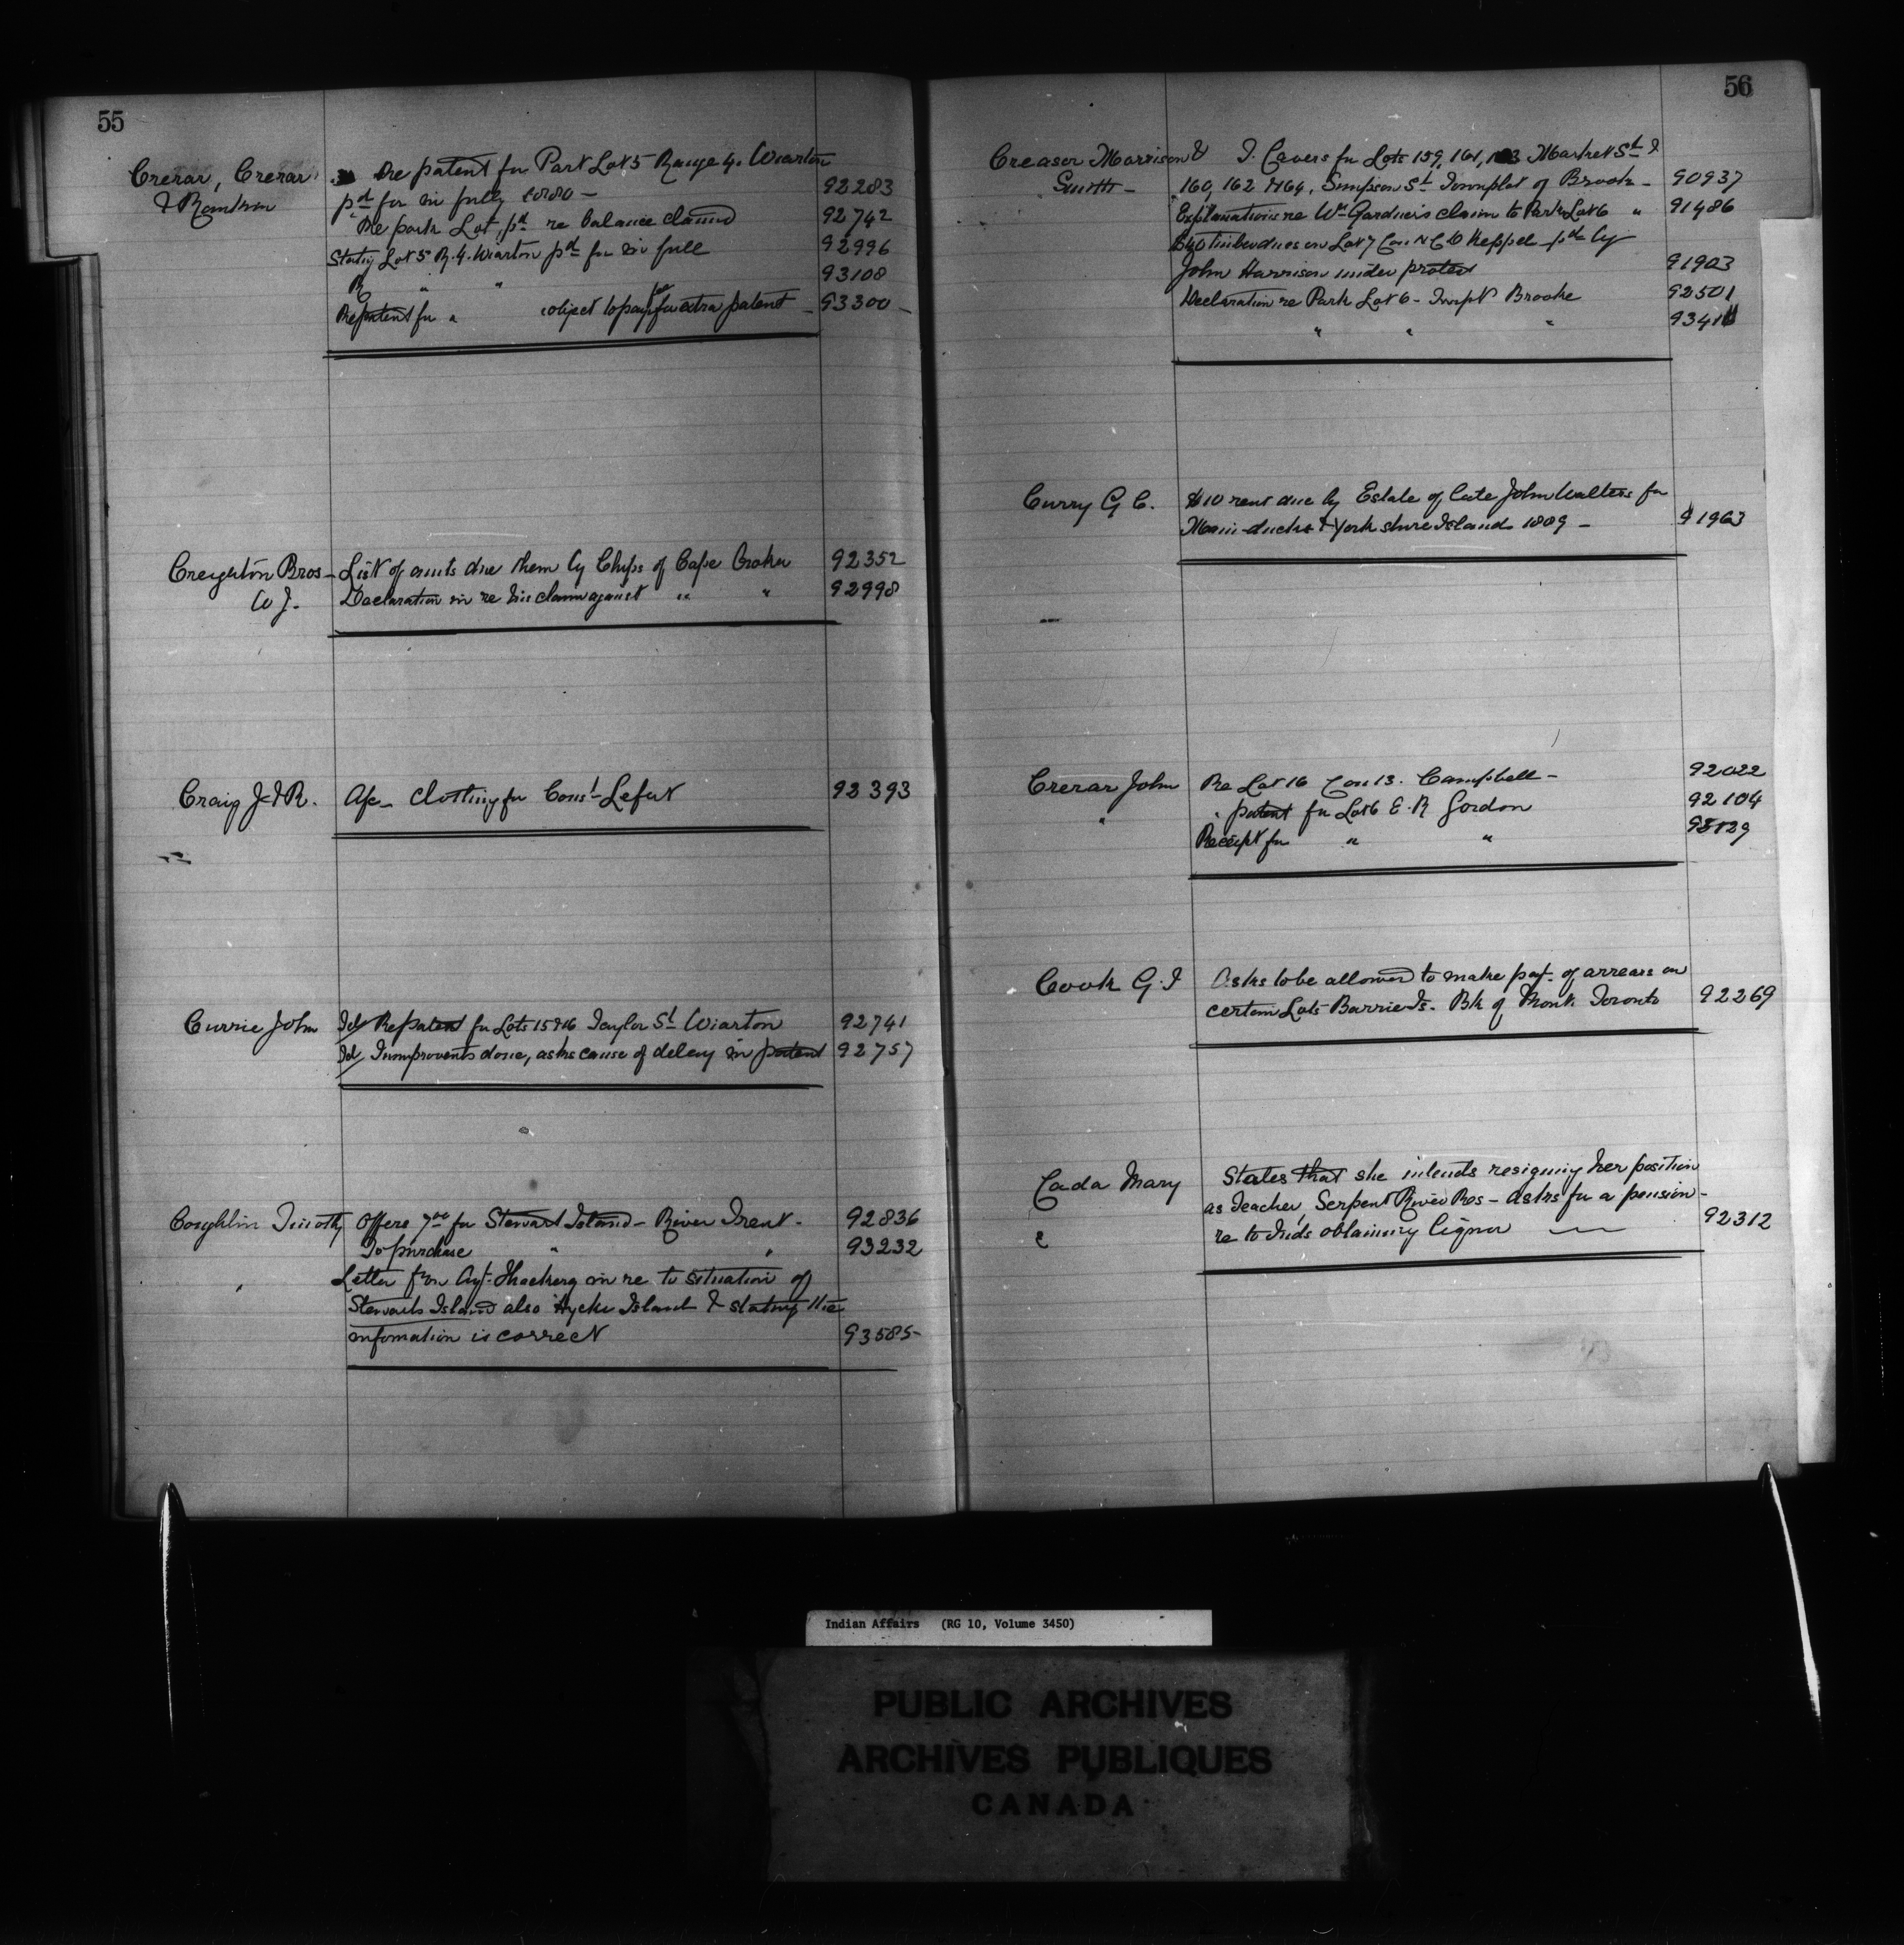 55
Crerar, Crerar re patent for Part Lot 5 Range 4. Wiarton
& Bankier pd for in full, 92283
Re park Lot, pd re balance claimed 92742
Stating Lot 5 R. 4. Wiarton pd for in full 92996
R " " 93108
Re patent for " object to pay fee for extra patent - 93300 -
Creighton Bros - List of amts due them by Chips of Cape Croker 92352
W J. Declaration in re his claim against " " 92998
Craig J. & R. A/c - Clothing for Const Lefort 92393
Currie John Id/ Re patent for Lots 15 & 16 Taylor St Wiarton 92741
Id/ Improvents done, asks cause of delay in patent 92757
Coughlin Timothy Offers 7 00 for Stewart Island - River Trent - 92836
To purchase " " 93232
" Letter from Agt. Thackery in re to situation of
Stewarts Island also Hycke Island & stating the
information is correct 93585
56
Creasor Morrison & J. Cavers for Lots 159, 161, 163 Market St &
Smith - 160, 162 & 164, Simpson St Townplot of Brooke - 90937
Explanations re Wm Gardner's claim to Park Lot 6 " 91486
$40 Timber dues on Lot 7 Con N C D Keppel pd by
John Harrison under protest 91903
Declaration re Park Lot 6 - Twnplt Brooke 92501
" " " 9341
Curry G C. $10 rent due by Estate of late John Walters for
Main-ducks & York shire Islands 1889 - 91963
Crerar John Re Lot 16 Con 13. Campbell - 92022
" " patent for Lot 6 E. R Gordon 92104
Receipt for " " 93129
Cook G. J Asks to be allowed to make pay't of arrears on
certain Lots Barrie Is. Bk of Mont. Toronto 92269
Cada Mary States that she intends resigning her position
as Teacher, Serpent River Res - asks for a pension -
" re to Inds obtaining liquor 92312
Indian Affairs (RG 10, Volume 3450)
PUBLIC ARCHIVES
ARCHIVES PUBLIQUES
CANADA